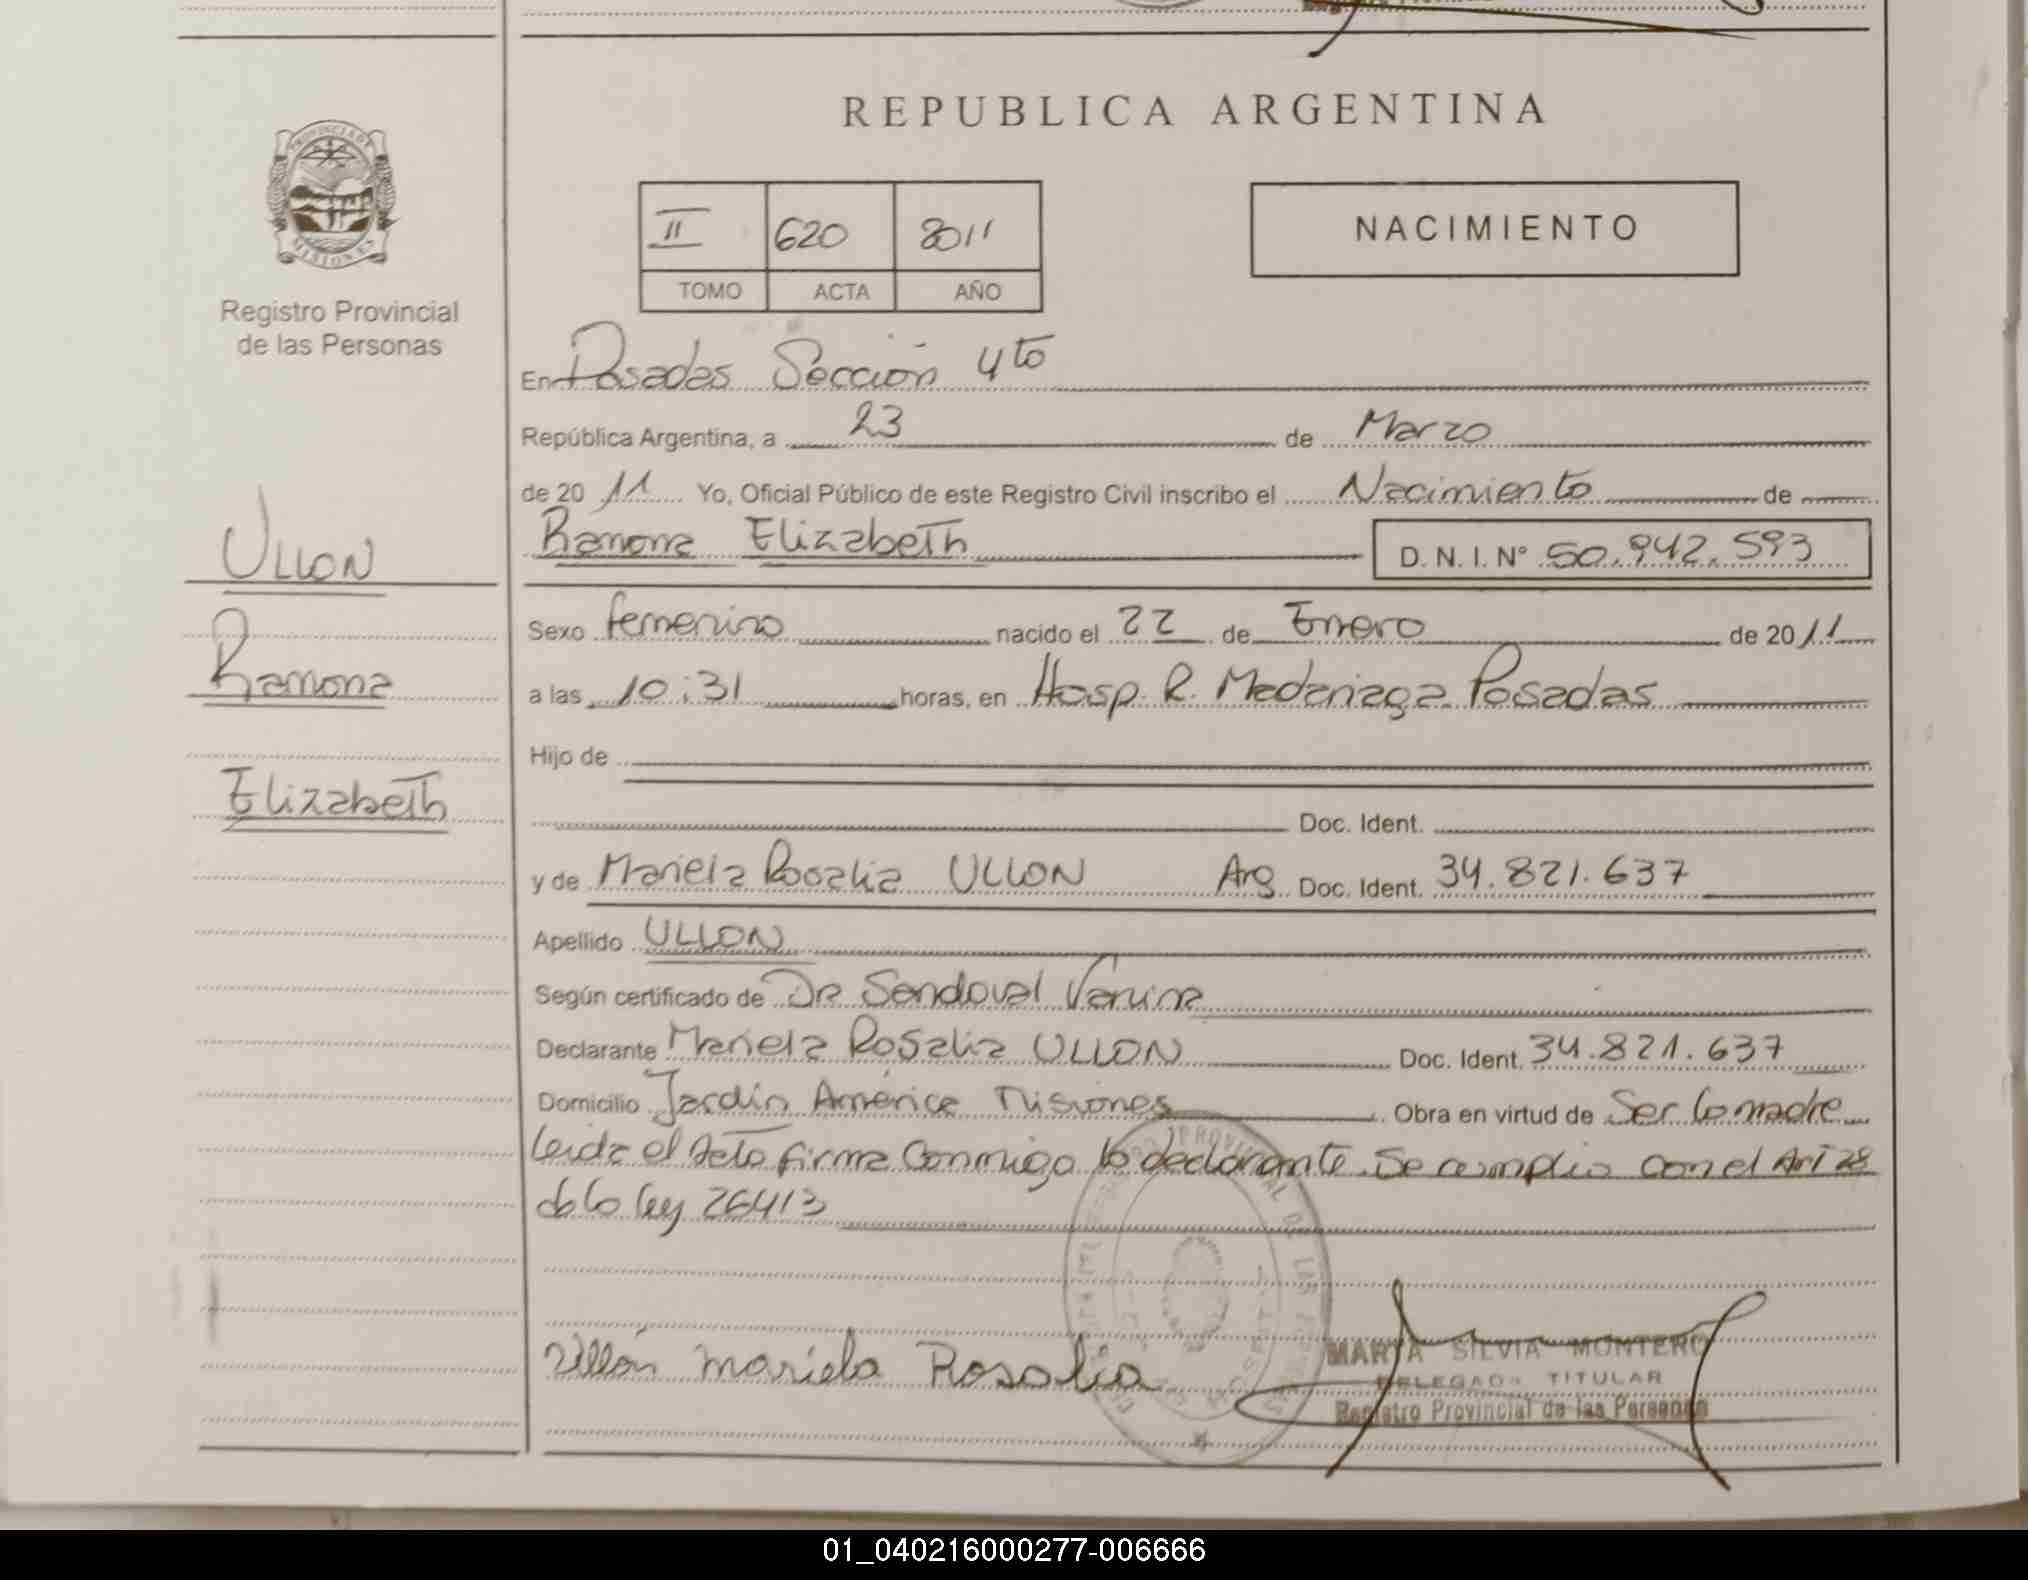 REPUBLICA ARGENTINA
PROVINCIA DE
MISIONES
Registro Provincial
de las Personas
II 620 2011
TOMO ACTA AÑO
NACIMIENTO
En Posadas Sección 4to
República Argentina, a 23 de Marzo
de 20 11 Yo, Oficial Público de este Registro Civil inscribo el Nacimiento de
Ramona Elizabeth D. N. I. N° 50.942.593
ULLON
Ramona
Elizabeth
Sexo femenino nacido el 22 de Enero de 20 11
a las 10:31 horas, en Hosp. R. Madariaga. Posadas
Hijo de
Doc. Ident.
y de Mariela Rosalia ULLON Arg Doc. Ident. 34.821.637
Apellido ULLON
Según certificado de Dra Sandoval Vanina
Declarante Mariela Rosalia ULLON Doc. Ident. 34.821.637
Domicilio Jardín América Misiones Obra en virtud de Ser la madre
leida el Acta firma conmigo la declarante. Se cumplio con el Art 28
de la ley 26413
Ullón mariela Rosalia
MARTA SILVIA MONTERO
DELEGADA TITULAR
Registro Provincial de las Personas
01_040216000277-006666